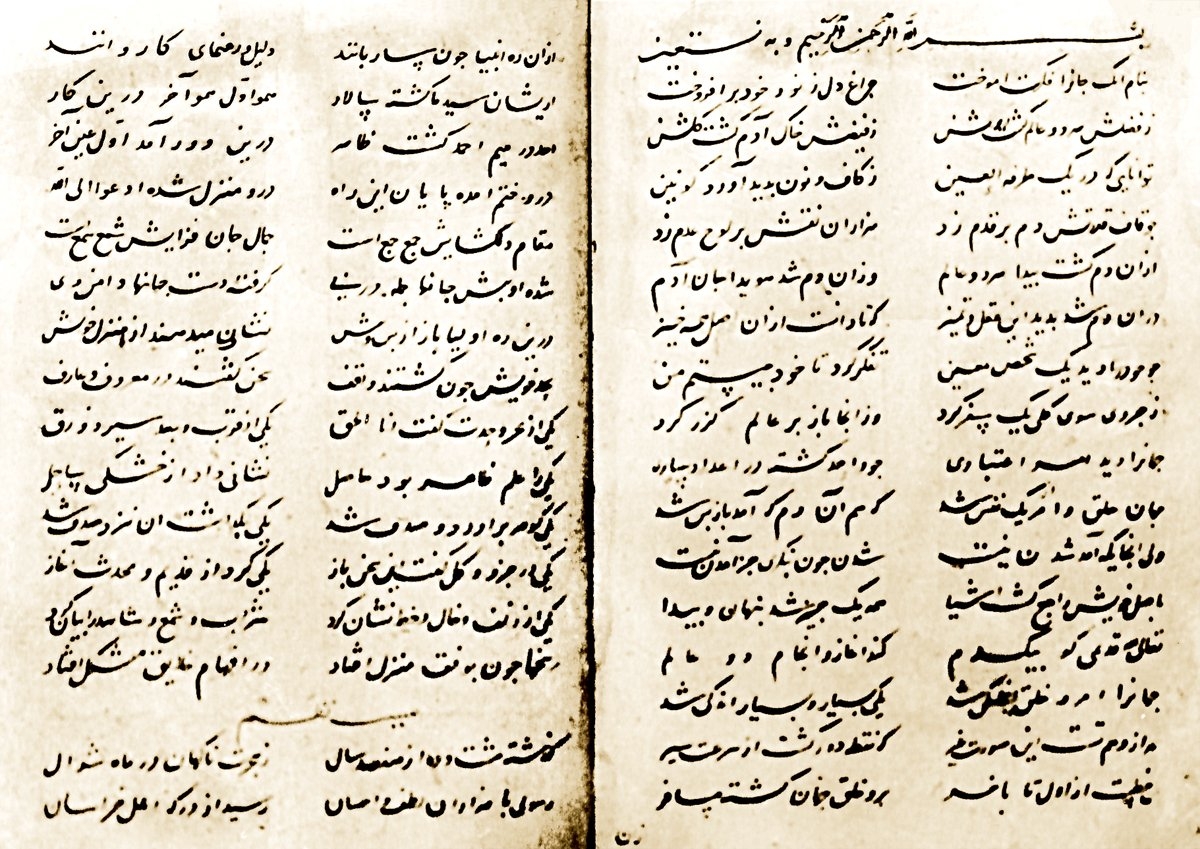 بسم الله الرحمن الرحیم و به نستعین
بنام آنک جانرا فکرت آموخت چراغ دل ز نور خود برافروخت
ز فضلش هر دو عالم گشت روشن ز فیضش خاک آدم گشت گلشن
توانایی که در یک طرفه العین ز کاف و نون پدید آورد کونین
چو قاف قدرتش دم بر قلم زد هزاران نقش بر لوح عدم زد
از آن دم گشت پیدا هر دو عالم وزان دم شد هویدا جان آدم
در آن دم شد پدید این عقل و تمیز که تا دانست از آن اصل همه چیز
چو خود را دید یک شخص معین تفکر کرد تا خود چیستم من
ز جزوی سوی کلی یک سفر کرد وز آنجا باز بر عالم گذر کرد
جهانرا دید همه اعتباری چو واحد گشته در اعداد ساری
جهان خلق و امر از یک نفس شد که هم آن دم که آمد باز پس شد
ولی آنجایگه آمد شدن نیست شدن چون بنگری جز آمدن نیست
باصل خویش راجع گشت اشیا همه یک چیز شد پنهان و پیدا
تعالی الله قدیمی کو بیکدم کند آغاز و انجام دو عالم
جهانرا امر و خلق اینجا یکی شد یکی بسیار و بسیار اندکی شد
همه از وهم تست این صورت غیر که نقطه دایره گشت از سرعت سیر
یکی خطست از اول تا بآخر برو خلق جهان گشته مسافر
درین
از آن ره انبیا چون ساربانند دلیل و رهنمای کاروانند
وزیشان سید ما گشته سالار همو اول همو آخر درین کار
احد در میم احمد گشت ظاهر درین دور آمد اول عین آخر
درو ختم آمده پایان این راه درو منزل شده ادعوا الی الله
مقام دلگشایش جمع جمع است جمال جان فزایش شمع جمع است
شده او پیش جانها جمله در پی گرفته دست جانها دامن وی
درین ره اولیا باز از پس و پیش نشانی میدهند از منزل خویش
بحد خویش چون گشتند واقف سخن گفتند در معروف و عارف
یکی از بحر وحدت گفت انا الحق یکی از قرب و بعد سیر زورق
یکی را علم ظاهر بود حاصل نشانی داد از خشکی ساحل
یکی گوهر برآورد و هدف شد یکی بگذاشت آن نزد صدف شد
یکی در جزو و کل گفت این سخن باز یکی کرد از قدیم و محدث آغاز
یکی از زلف و خال و خط نشان کرد شراب و شمع و شاهد را بیان کرد
سخنها چون بوفق منزل افتاد در افهام خلایق مشکل افتاد
گذشته هفت و ده از هفتصد سال ز هجرت ناگهان در ماه شوال
رسولی با هزاران لطف و احسان رسید از درگه اهل خراسان